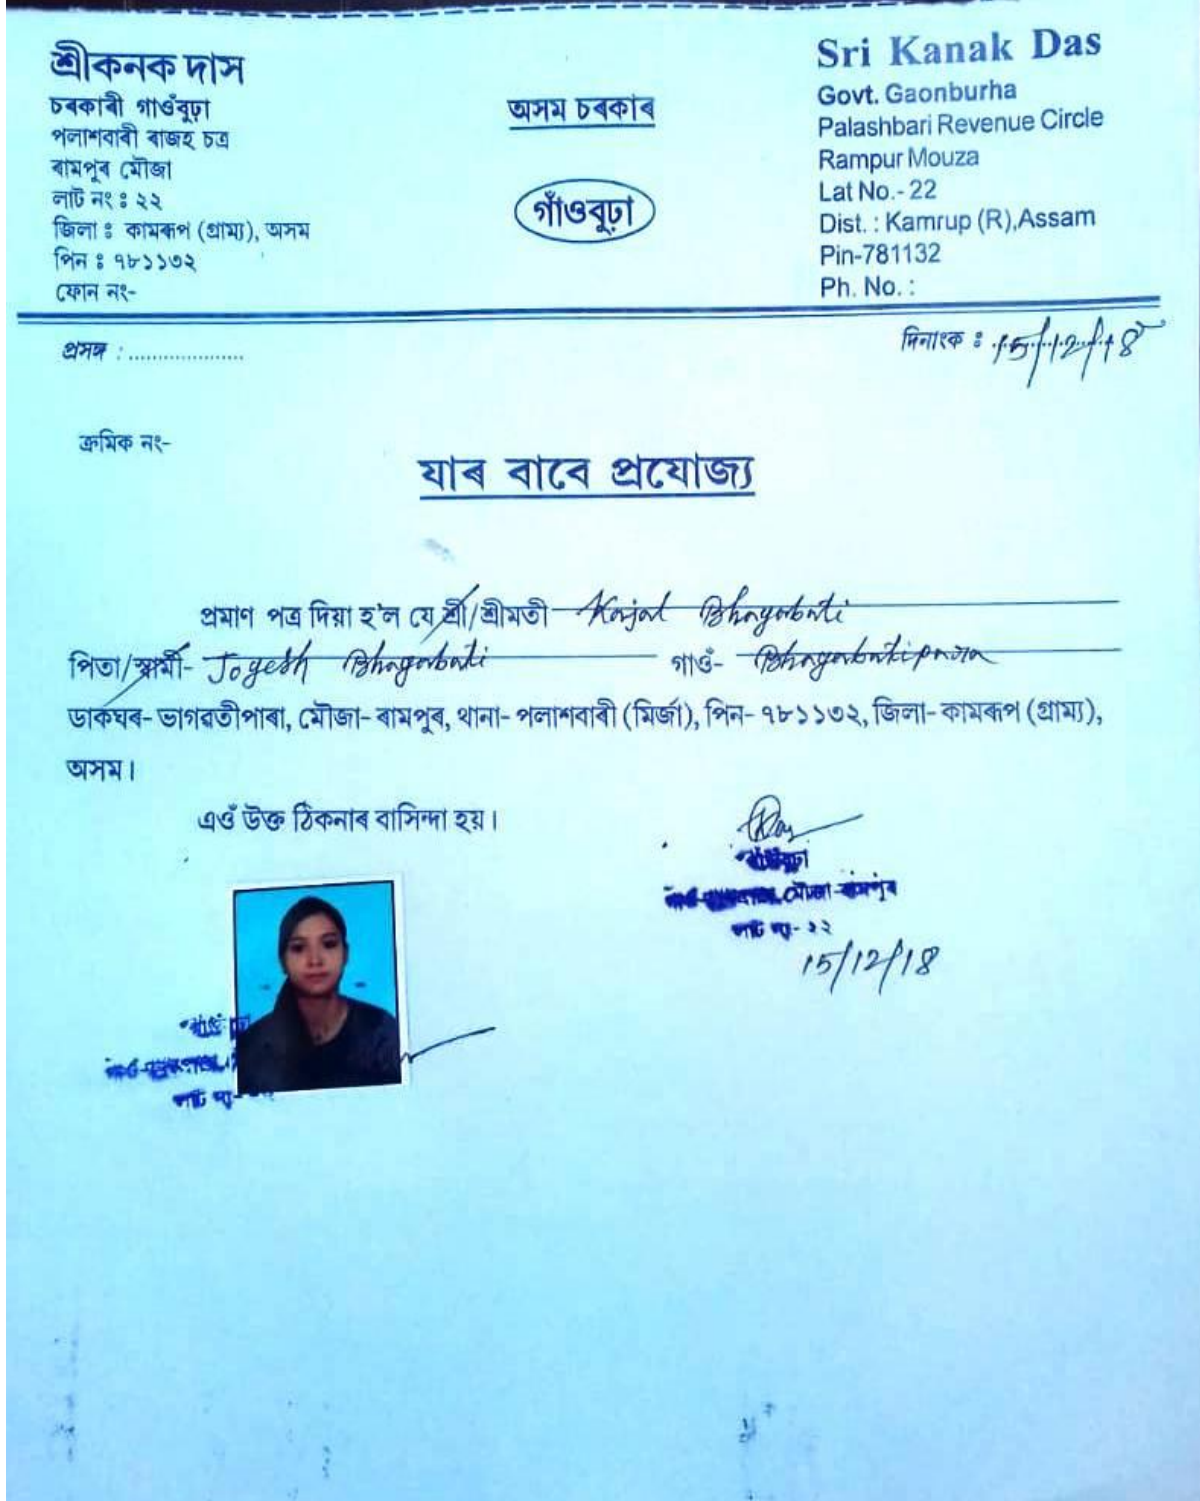 শ্ৰীকনক দাস
চৰকাৰী গাওঁবুঢ়া
পলাশবাৰী ৰাজহ চক্ৰ
ৰামপুৰ মৌজা
লাট নং ঃ ২২
জিলা ঃ কামৰূপ (গ্ৰাম্য), অসম
পিন ঃ ৭৮১১৩২
ফোন নং-
অসম চৰকাৰ
গাঁওবুঢ়া
Sri Kanak Das
Govt. Gaonburha
Palashbari Revenue Circle
Rampur Mouza
Lat No.- 22
Dist. : Kamrup (R),Assam
Pin-781132
Ph. No. :
প্ৰসঙ্গ : ....................
দিনাংক ঃ 15/12/18
ক্ৰমিক নং-
যাৰ বাবে প্ৰযোজ্য
প্ৰমাণ পত্ৰ দিয়া হ'ল যে শ্ৰী/শ্ৰীমতী Kajal Bhagabati
পিতা/স্বামী- Jogesh Bhagabati গাওঁ- Bhagabatipara
ডাকঘৰ- ভাগৱতীপাৰা, মৌজা- ৰামপুৰ, থানা- পলাশবাৰী (মিৰ্জা), পিন- ৭৮১১৩২, জিলা- কামৰূপ (গ্ৰাম্য),
অসম।
এওঁ উক্ত ঠিকনাৰ বাসিন্দা হয়।
মৌজা -ৰামপুৰ
২২
15/12/18